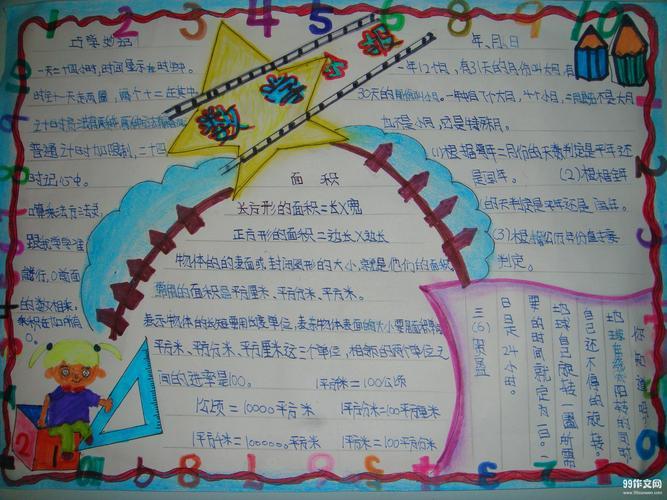 数学小报
巧学妙记
一天二十四小时,时间显示在钟中。
时针一天走两圈,两个十二在其中。
普通计时加限制,二十四
时记心中。
年、月、日
一年12个月,有31天的月份叫大月,有
30天的月份叫小月。一年中有7个大月,4个小月,二月既不是大月
也不是小月,还是特殊月。
(1)根据每年二月份的天数判定是平年还
是闰年。 (2)根据全年
的天判定是平年还是闰年。
(3)根据公历年份
判定。
面 积
长方形的面积=长X宽
正方形的面积=边长X边长
物体的的表面或封闭图形的大小,就是他们的面积
常用的面积是平方厘米、平方分米、平方米。
表示物体的长短要用长度单位,表示物体表面的大小要用面积单位
平方米、平方分米、平方厘米这三个单位,相邻的两个单位之
间的进率是100。 1平方千米=100公顷
1公顷=10000平方米 1平方分米=100平方厘米
1平方千米=1000000平方米 1平方米=100平方分米
你知道吗?
地球在绕太阳转的同时
自己还不停的旋转。
地球自己旋转一圈所需
要的时间就定为一日。一
日是24小时。
三(6)贾孟
99作文网